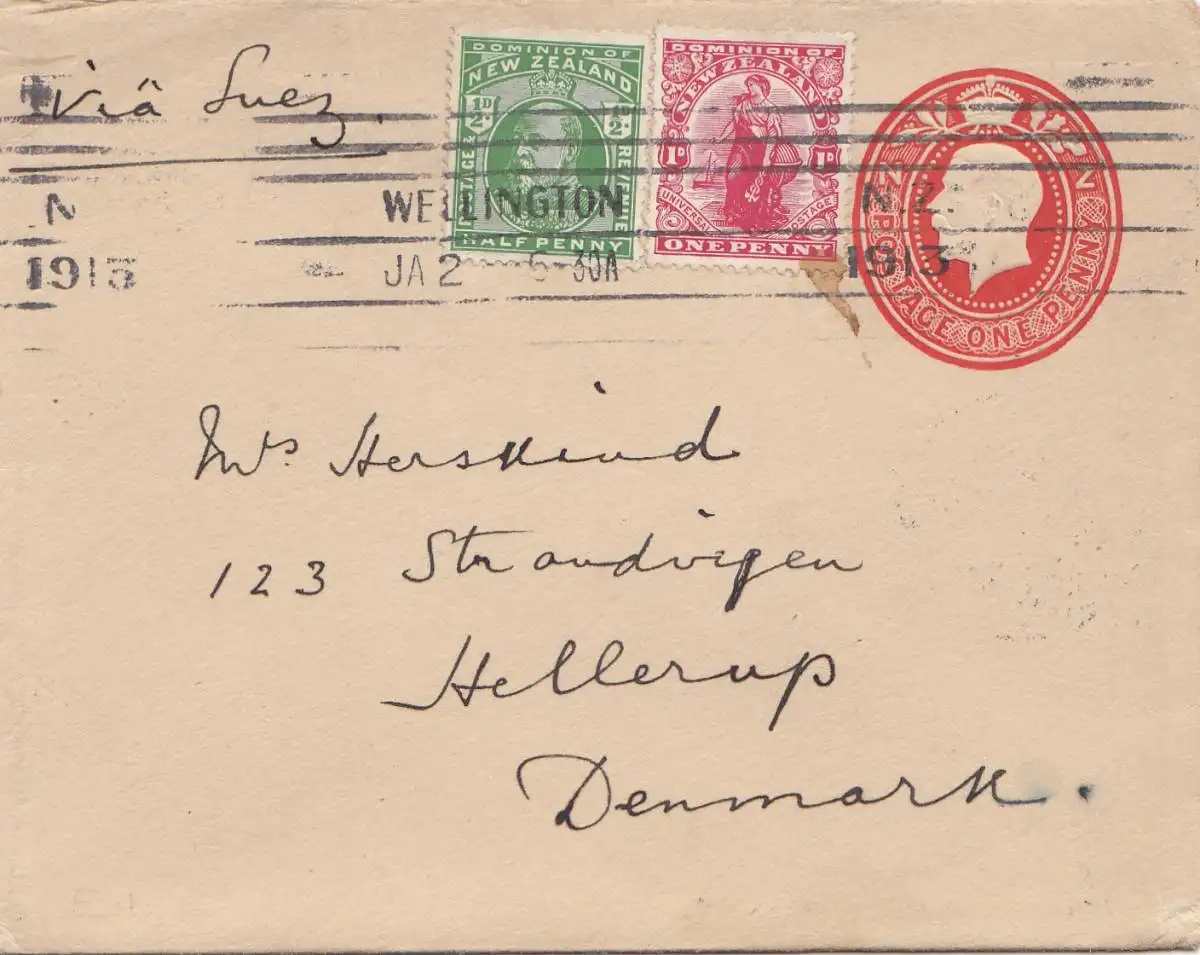 Viâ Suez.
DOMINION OF
NEW ZEALAND
½D
POSTAGE & REVENUE
HALF PENNY
DOMINION OF
NEW ZEALAND
1D 1D
UNIVERSAL POSTAGE
ONE PENNY
POSTAGE ONE PENNY
N WELLINGTON N.Z.
1913 JA 2 30A 1913
Mrs Herskind
123 Strandvigen
Hellerup
Denmark.